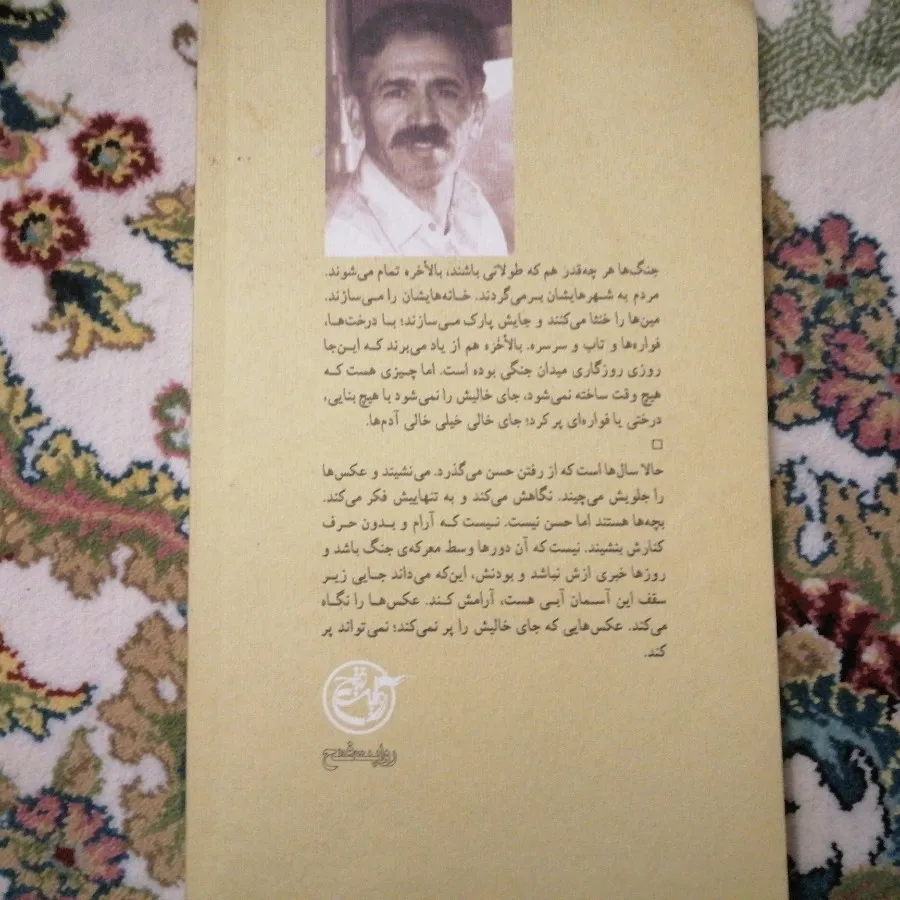 جنگ‌ها هر چه‌قدر هم که طولانی باشند، بالأخره تمام می‌شوند.
مردم به شهرهایشان برمی‌گردند. خانه‌هایشان را می‌سازند.
مین‌ها را خنثا می‌کنند و جایش پارک می‌سازند؛ با درخت‌ها،
فواره‌ها و تاب و سرسره. بالأخره هم از یاد می‌برند که این‌جا
روزی روزگاری میدان جنگی بوده است. اما چیزی هست که
هیچ وقت ساخته نمی‌شود، جای خالیش را نمی‌شود با هیچ بنایی،
درختی یا فواره‌ای پر کرد؛ جای خالی خیلی خالی آدم‌ها.
حالا سال‌ها است که از رفتن حسن می‌گذرد. می‌نشیند و عکس‌ها
را جلویش می‌چیند. نگاهش می‌کند و به تنهاییش فکر می‌کند.
بچه‌ها هستند اما حسن نیست. نیست که آرام و بدون حرف
کنارش بنشیند. نیست که آن دورها وسط معرکه‌ی جنگ باشد و
روزها خبری ازش نباشد و بودنش، این‌که می‌داند جایی زیر
سقف این آسمان آبی هست، آرامش کند. عکس‌ها را نگاه
می‌کند. عکس‌هایی که جای خالیش را پر نمی‌کند؛ نمی‌تواند پر
کند.
روایت فتح